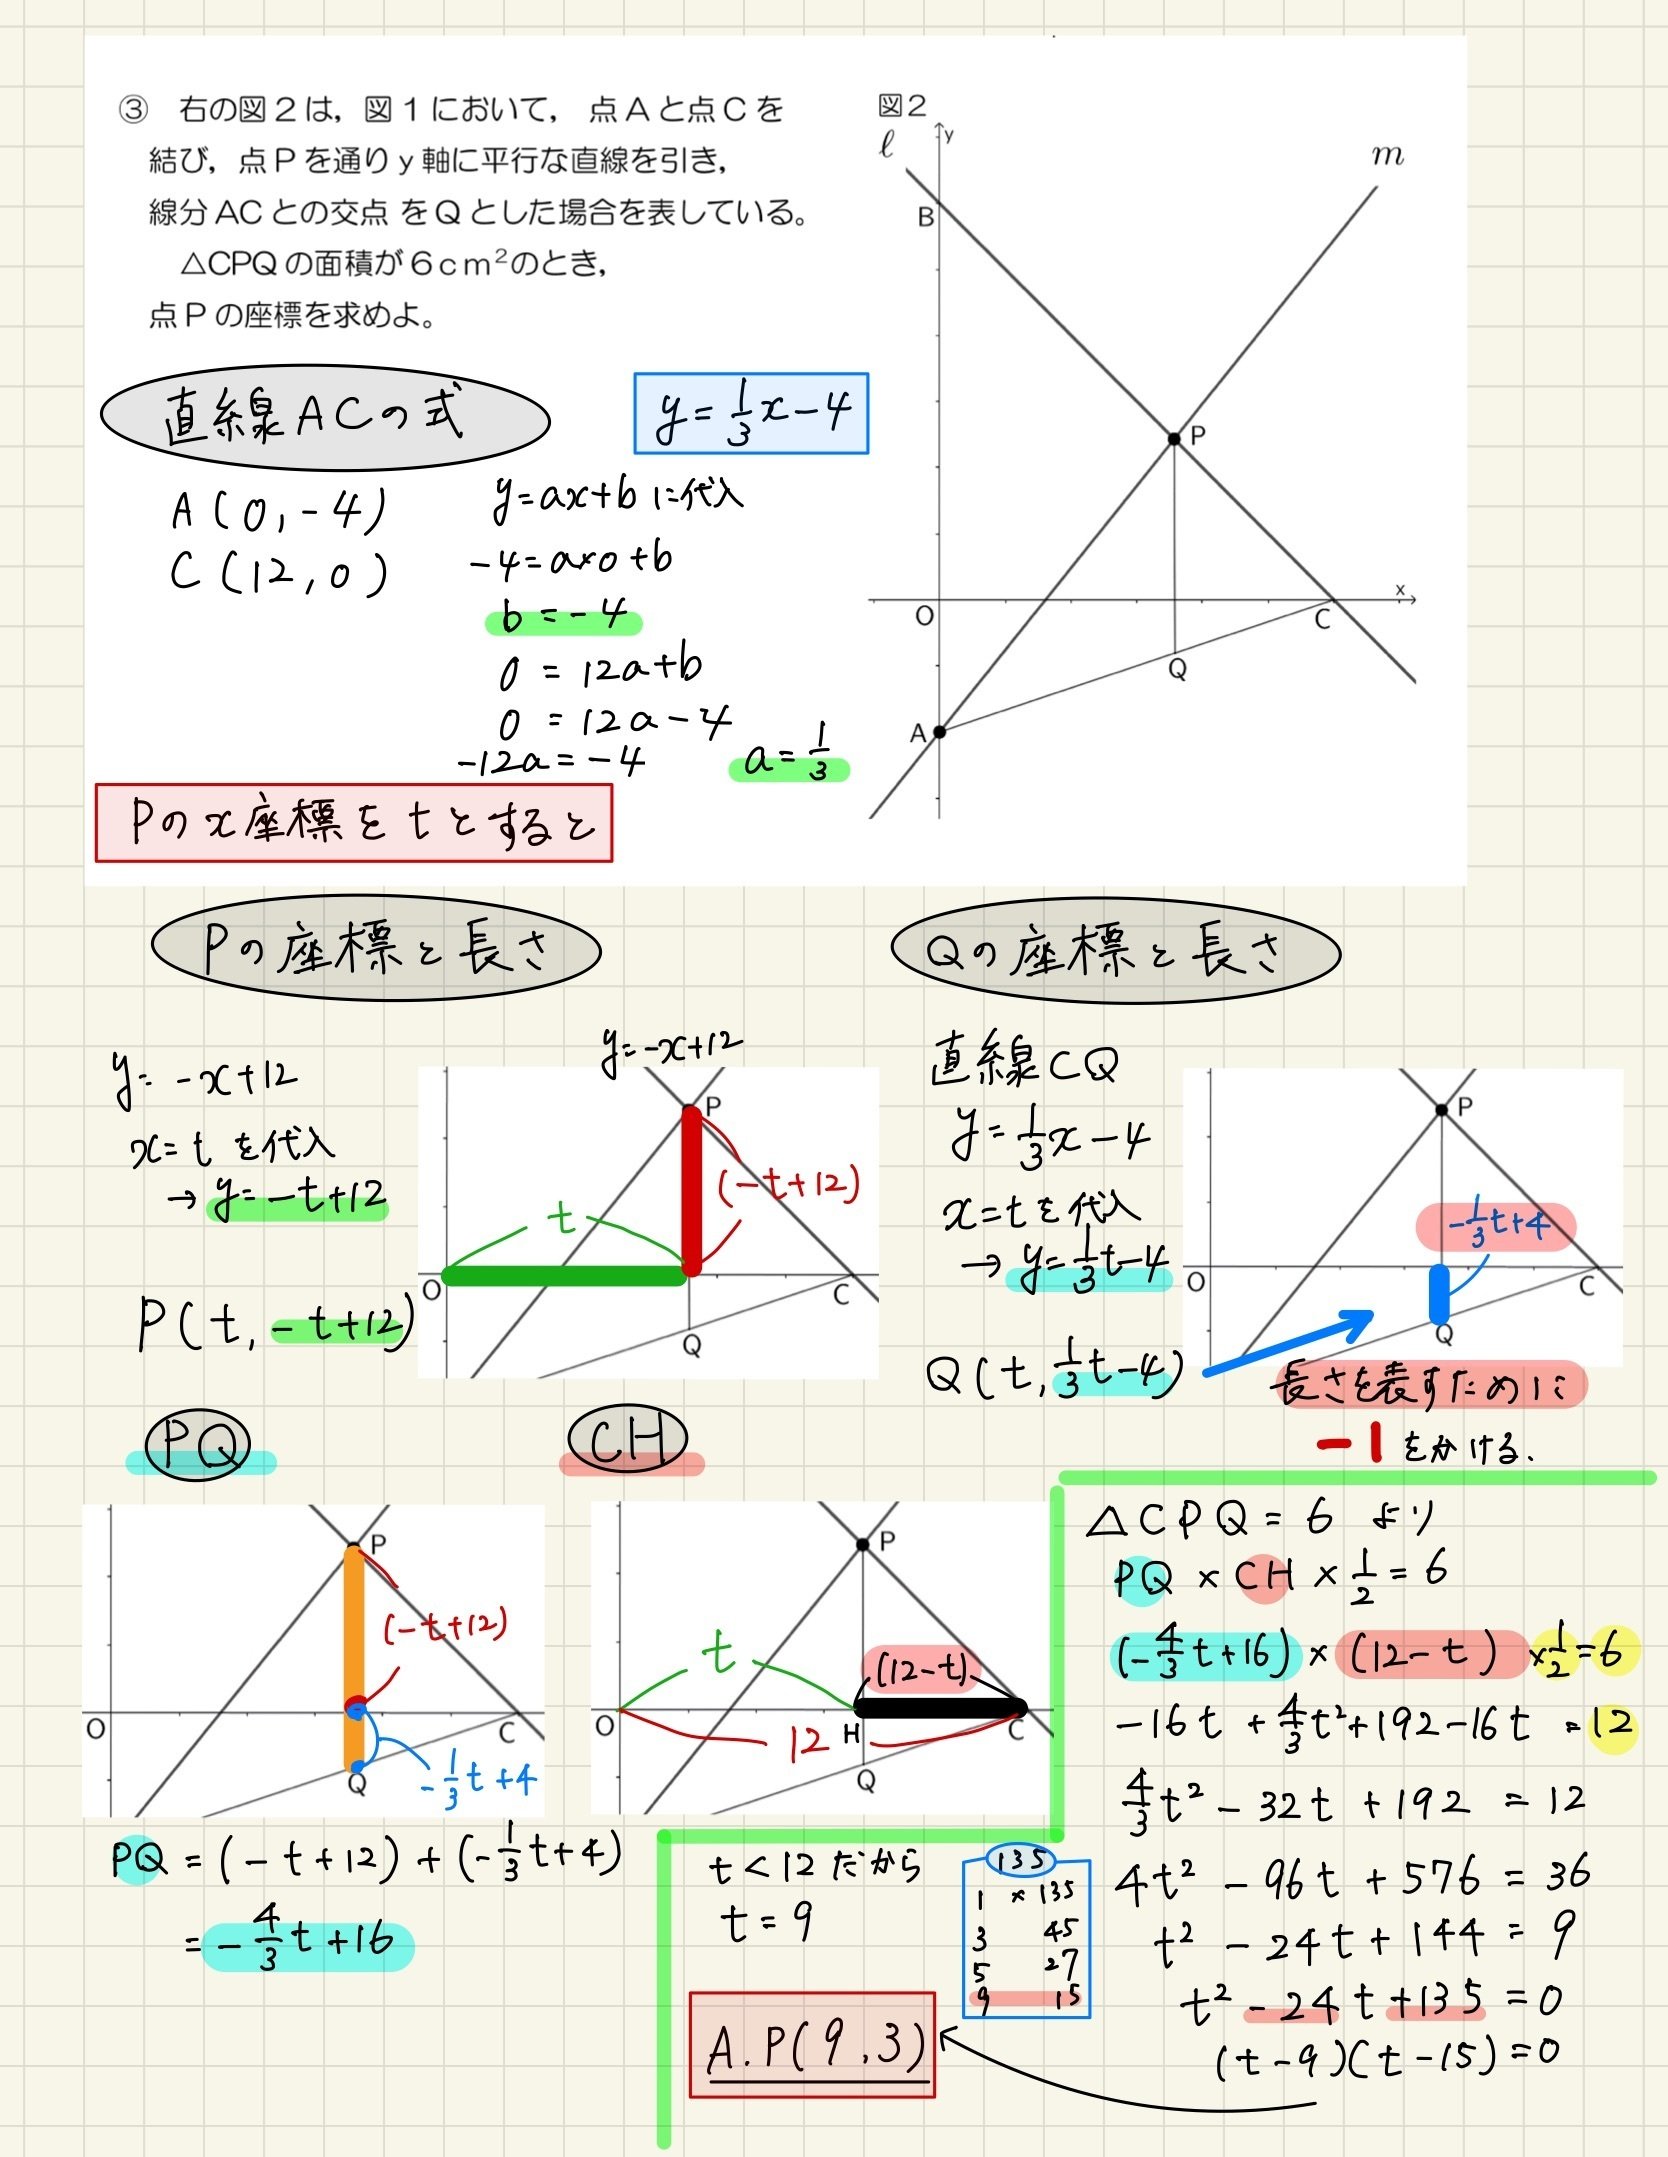 ③ 右の図2は，図1において，点Aと点Cを
結び，点Pを通りy軸に平行な直線を引き，
線分ACとの交点 をQとした場合を表している。
△CPQの面積が6cm²のとき，
点Pの座標を求めよ。
図2
ℓ
y
m
B
P
x
O
C
Q
A
直線ACの式
y=1/3x-4
A(0,-4)
C(12,0)
y=ax+bに代入
-4=a×0+b
b=-4
0=12a+b
0=12a-4
-12a=-4
a=1/3
Pのx座標をtとすると
Pの座標と長さ
y=-x+12
x=tを代入
→y=-t+12
P(t,-t+12)
y=-x+12
P
(-t+12)
t
O
C
Q
Qの座標と長さ
直線CQ
y=1/3x-4
x=tを代入
→y=1/3t-4
Q(t,1/3t-4)
P
-1/3t+4
O
C
Q
長さを表すために
-1をかける.
PQ
P
(-t+12)
O
C
Q
-1/3t+4
PQ=(-t+12)+(-1/3t+4)
=-4/3t+16
CH
P
t
(12-t)
O
12
H
C
Q
△CPQ=6より
PQ×CH×1/2=6
(-4/3t+16)×(12-t)×1/2=6
-16t+4/3t²+192-16t=12
4/3t²-32t+192=12
4t²-96t+576=36
t²-24t+144=9
t²-24t+135=0
(t-9)(t-15)=0
135
1×135
3 45
5 27
9 15
t<12だから
t=9
A.P(9,3)